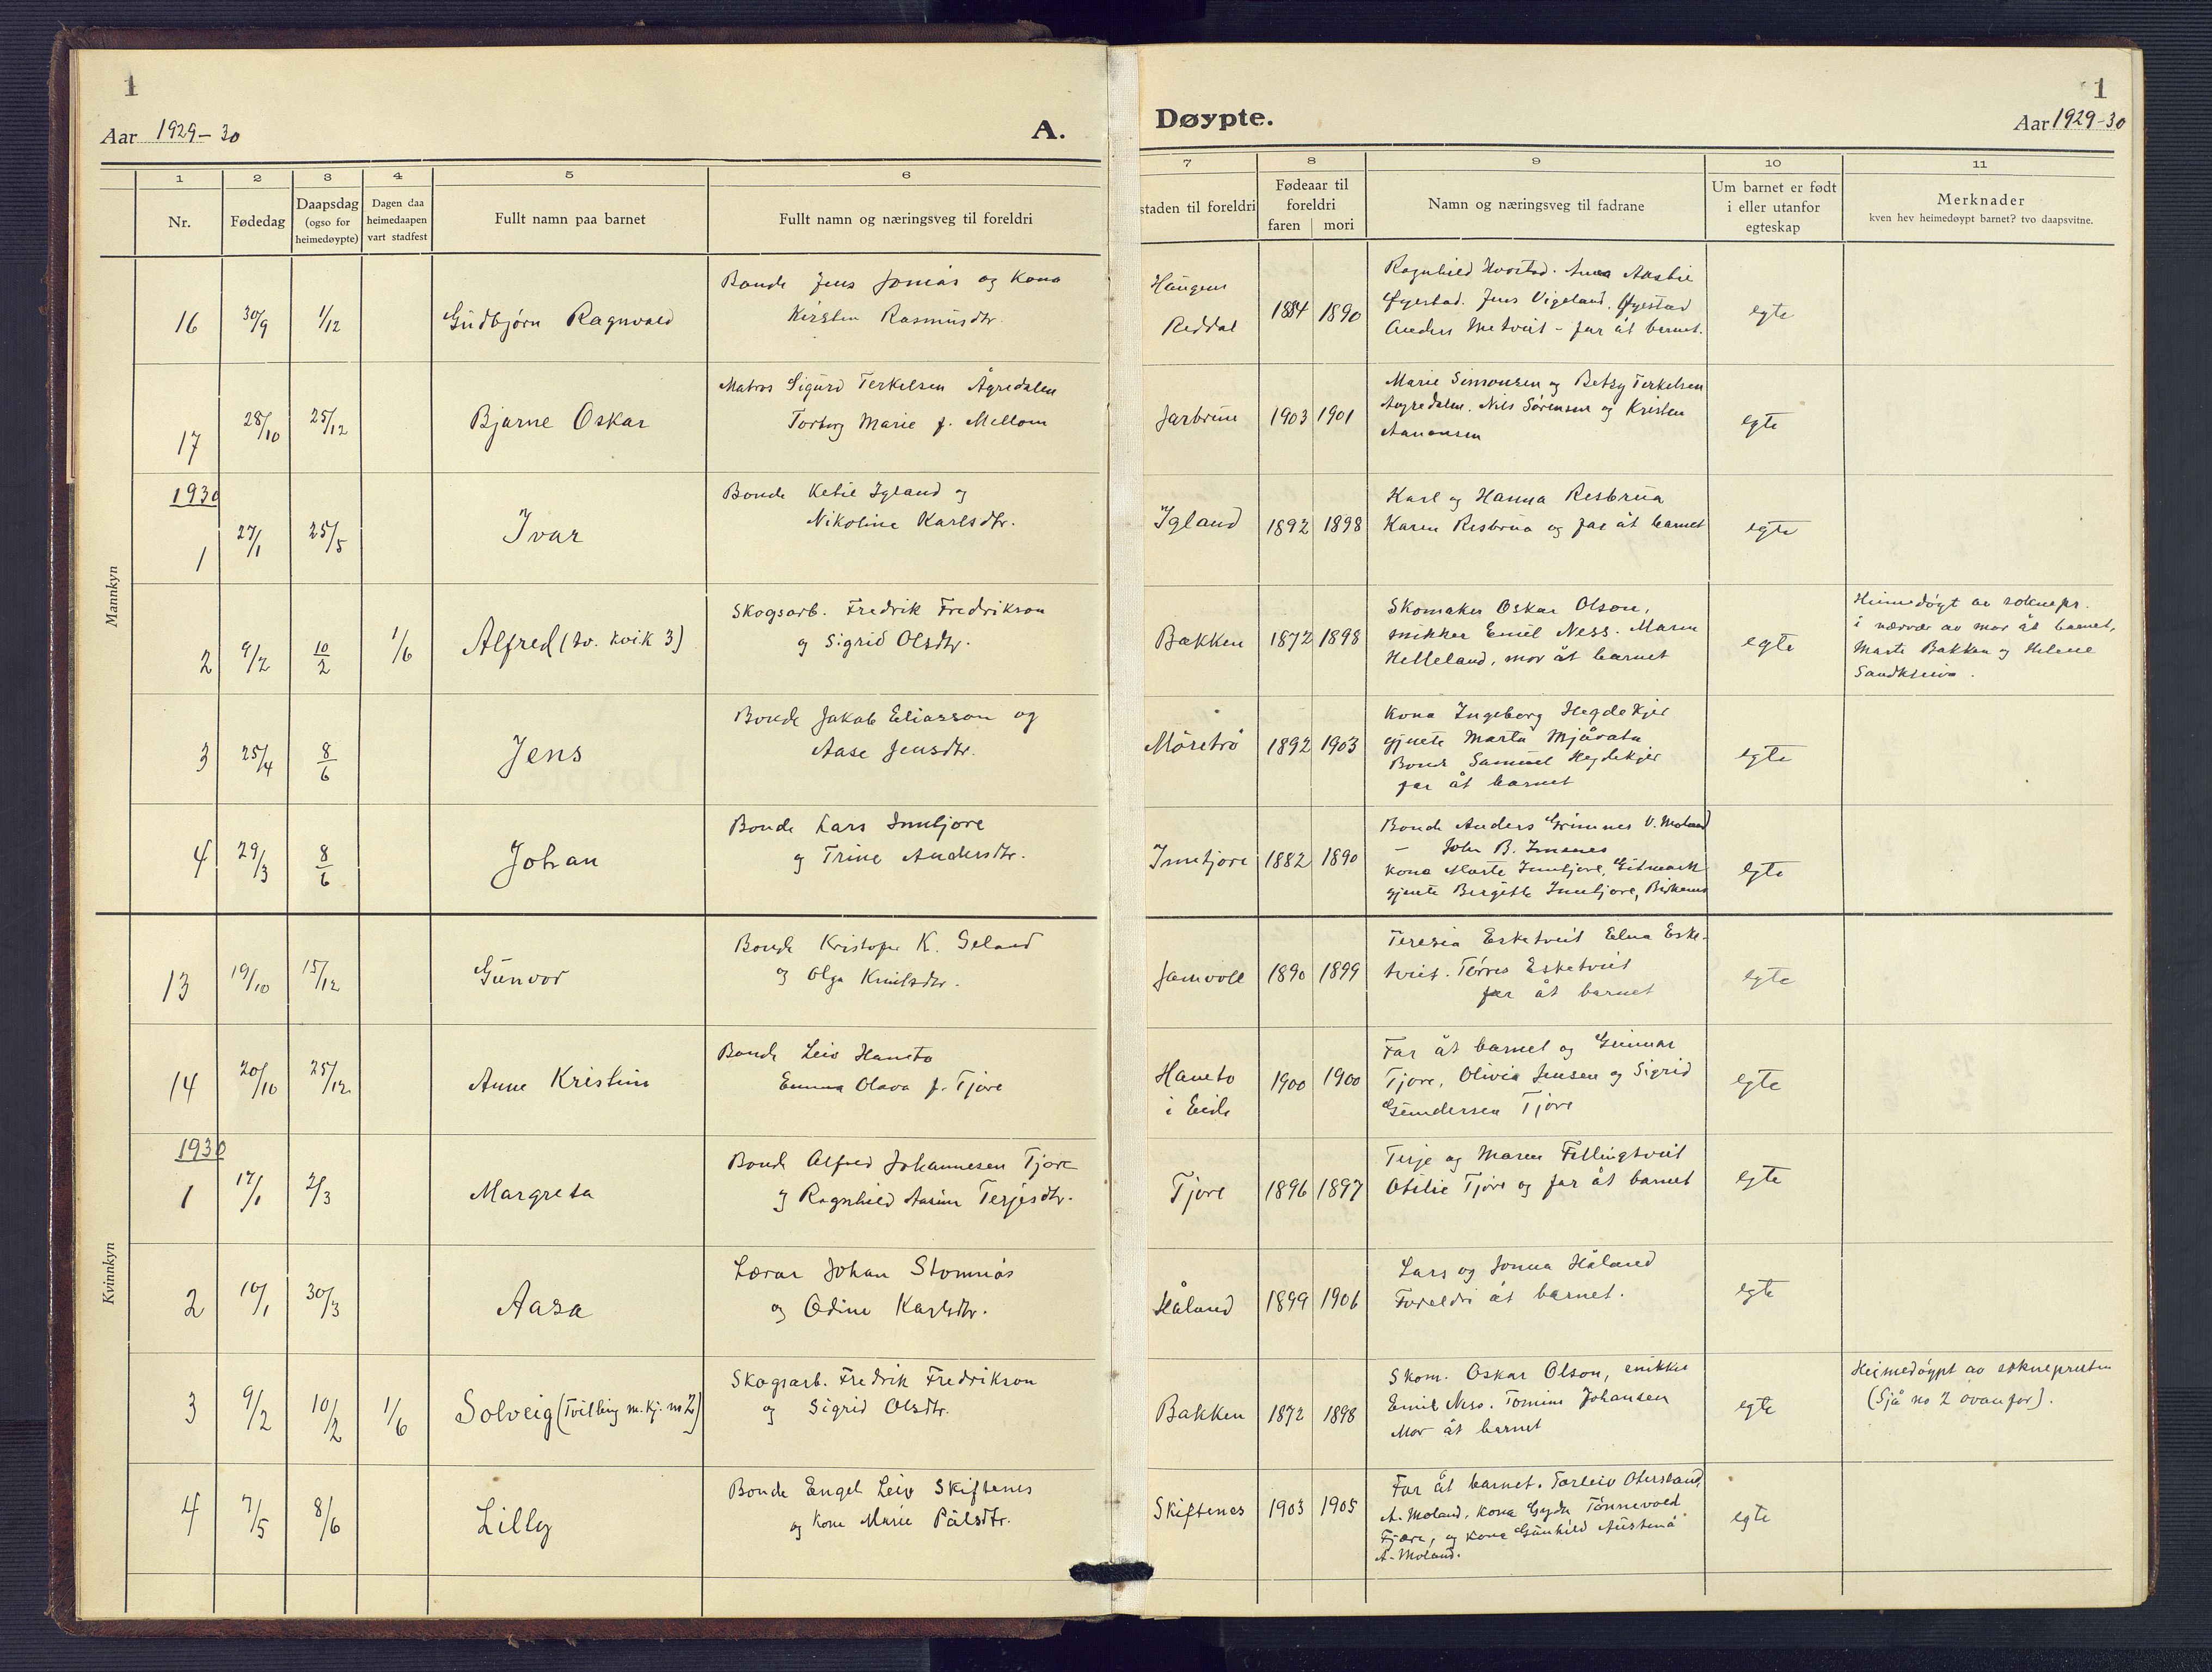 1
Aar 1929-30
A.
1 2 3 4 5 6
Nr.
Fødedag
Daapsdag
(ogso for
heimedøypte)
Dagen daa
heimedaapen
vart stadfest
Fullt namn paa barnet
Fullt namn og næringsveg til foreldri
Døypte.
1
Aar 1929-30
7 8 9 10 11
staden til foreldri
Fødeaar til
foreldri
faren mori
Namn og næringsveg til fadrane
Um barnet er født
i eller utanfor
egteskap
Merknader
kven hev heimedøypt barnet? tvo daapsvitne.
Mannkyn
16 30/9 1/12 Gudbjørn Ragnvald
Bonde Jens og kona
Kirsten Rasmusdtr.
Haugen
Reddal
1884 1890
Ragnhild
Øyestad. Jens Vigeland, Øyestad
Anders - far åt barnet.
egte
17 28/10 25/12 Bjarne Oskar
Matros Sigurd Terkelsen Ågredalen
Torborg Marie f. Mellom
1903 1901
Marie Simonsen og Betsy Terkelsen
Nils Sørensen og Kristen
Aanonsen
egte
1930
1 27/1 25/5 Ivar
Bonde Ketil Igland og
Nikoline Karlsdtr.
Igland
1892 1898
Karl og Hanna Resbrua
Karen Resbrua og far åt barnet
egte
2 9/2 10/2 1/6 Alfred (tv. kvik 3)
Skogsarb. Fredrik Fredrikson
og Sigrid Olsdtr.
Bakken
1872 1898
Skomaker Oskar Olson,
snikker Emil Ness. Maren
Helleland, mor åt barnet
egte
Heimedøypt av soknepr.
i nærvær av mor åt barnet,
Marte Bakken og Helene
3 25/4 8/6 Jens
Bonde Jakob Eliasson og
Aase Jensdtr.
Møretrø
1892 1903
Kona Ingeborg Hegdekjer
gjente Marta Mjåvatn
Bonde Samuel Hegdekjer
far åt barnet
egte
4 29/3 8/6 Johan
Bonde Lars Inntjore
og Trine Andersdtr.
Inntjore
1882 1890
Bonde Anders Grimnes V. Moland
- John B.
kona Marte Inntjore,
gjente Birgitte Inntjore,
egte
Kvinnkyn
13 19/10 15/12 Gunvor
Bonde Kristofer K. Geland
og Olga Knutsdtr.
Jamvoll
1890 1899
Teresia Esketveit Elna Eske-
tveit. Tørres Esketveit
far åt barnet
egte
14 20/10 25/12 Anne Kristine
Bonde Leiv Haneto
Emma Olava f. Tjore
Haneto
i Eide
1900 1900
Far åt barnet og Gunnar
Tjore, Olivia Jensen og Sigrid
Gundersen Tjore
egte
1930
1 17/1 2/3 Margreta
Bonde Alfred Johannesen Tjore
og Ragnhild Terjesdtr.
Tjore
1896 1897
Terje og Maren Fellingtveit
Otilie Tjore og far åt barnet
egte
2 10/1 30/3 Aasa
Lærar Johan Stomnås
og Odine Karlsdtr.
Håland
1899 1906
Lars og Jonna Håland
Foreldri åt barnet.
egte
3 9/2 10/2 1/6 Solveig (Tvilling m. kj. no 2)
Skogsarb. Fredrik Fredrikson
og Sigrid Olsdtr.
Bakken
1872 1898
Skom. Oskar Olson, snikker
Emil Ness. Tomine Johansen
Mor åt barnet
egte
Heimedøypt av soknepresten
(Sjå no 2 ovanfor).
4 7/5 8/6 Lilly
Bonde Engel Leiv Skiftenes
og kona Marie Pålsdtr.
Skiftenes
1903 1905
Far åt barnet. Torleiv Otersland,
A. Moland, kona Gyda Tønnevold
Fjære, og kona Gunhild Austenå
A. Moland.
egte